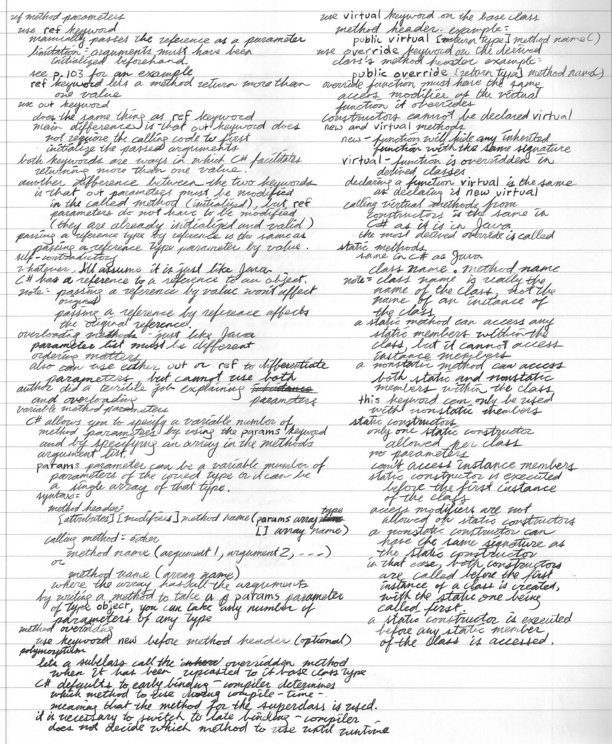 ref method parameters
use ref keyword
manually passes the reference as a parameter
limitation = arguments must have been
initialized beforehand.
see p. 103 for an example
ref keyword lets a method return more than
one value
use out keyword
does the same thing as ref keyword
main difference is that out keyword does
not require the calling code to first
initialize the passed arguments
both keywords are ways in which C# facilitates
returning more than one value.
another difference between the two keywords
is that out parameters must be modified
in the called method (initialized), but ref
parameters do not have to be modified
(they are already initialized and valid)
passing a reference type by reference is the same as
passing a reference type parameter by value.
self-contradictory
I'll assume it is just like Java
C# has a reference to a reference to an object.
note: passing a reference by value won't affect
original
passing a reference by reference affects
the original reference.
overloading methods - just like Java
parameter list must be different
ordering matters
also can use either out or ref to differentiate
parameters, but cannot use both
author did a terrible job explaining
and overloading parameters
variable method parameters
C# allows you to specify a variable number of
method parameters by using the params keyword
and by specifying an array in the method's
argument list.
params parameter can be a variable number of
parameters of the correct type or it can be
a single array of that type.
syntax=
method header=
[attributes] [modifiers] method name (params array type
[] array name)
calling method = either
method name (argument 1, argument 2, ---)
or
method name (array name)
where the array has all the arguments
by writing a method to take a params parameter
of type object, you can take any number of
parameters of any type
method overriding
use keyword new before method header (optional)
polymorphism
lets a subclass call the overridden method
when it has been upcasted to its base class type
C# defaults to early binding - compiler determines
which method to use during compile-time -
meaning that the method for the superclass is used.
it is necessary to switch to late binding - compiler
does not decide which method to use until runtime
use virtual keyword on the base class
method header. example=
public virtual [return type] method name()
use override keyword on the derived
class's method header example=
public override [return type] method name()
override function must have the same
access modifier of the virtual
function it overrides
constructors cannot be declared virtual
new and virtual methods
new - function will hide any inherited
function with the same signature
virtual - function is overridden in
derived classes
declaring a function virtual is the same
as declaring is new virtual
calling virtual methods from
constructors is the same in
C# as it is in Java
the most derived override is called
static methods
same in C# as Java
class name . method name
note = class name is really the
name of the class, not the
name of an instance of
the class
a static method can access any
static members within the
class, but it cannot access
instance members
a nonstatic method can access
both static and nonstatic
members within the class
this keyword can only be used
with nonstatic members
static constructors
only one static constructor
allowed per class
no parameters
can't access instance members
static constructor is executed
before the first instance
of the class
access modifiers are not
allowed on static constructors
a nonstatic constructor can
have the same signature as
the static constructor
in that case, both constructors
are called before the first
instance of a class is created,
with the static one being
called first.
a static constructor is executed
before any static member
of the class is accessed.